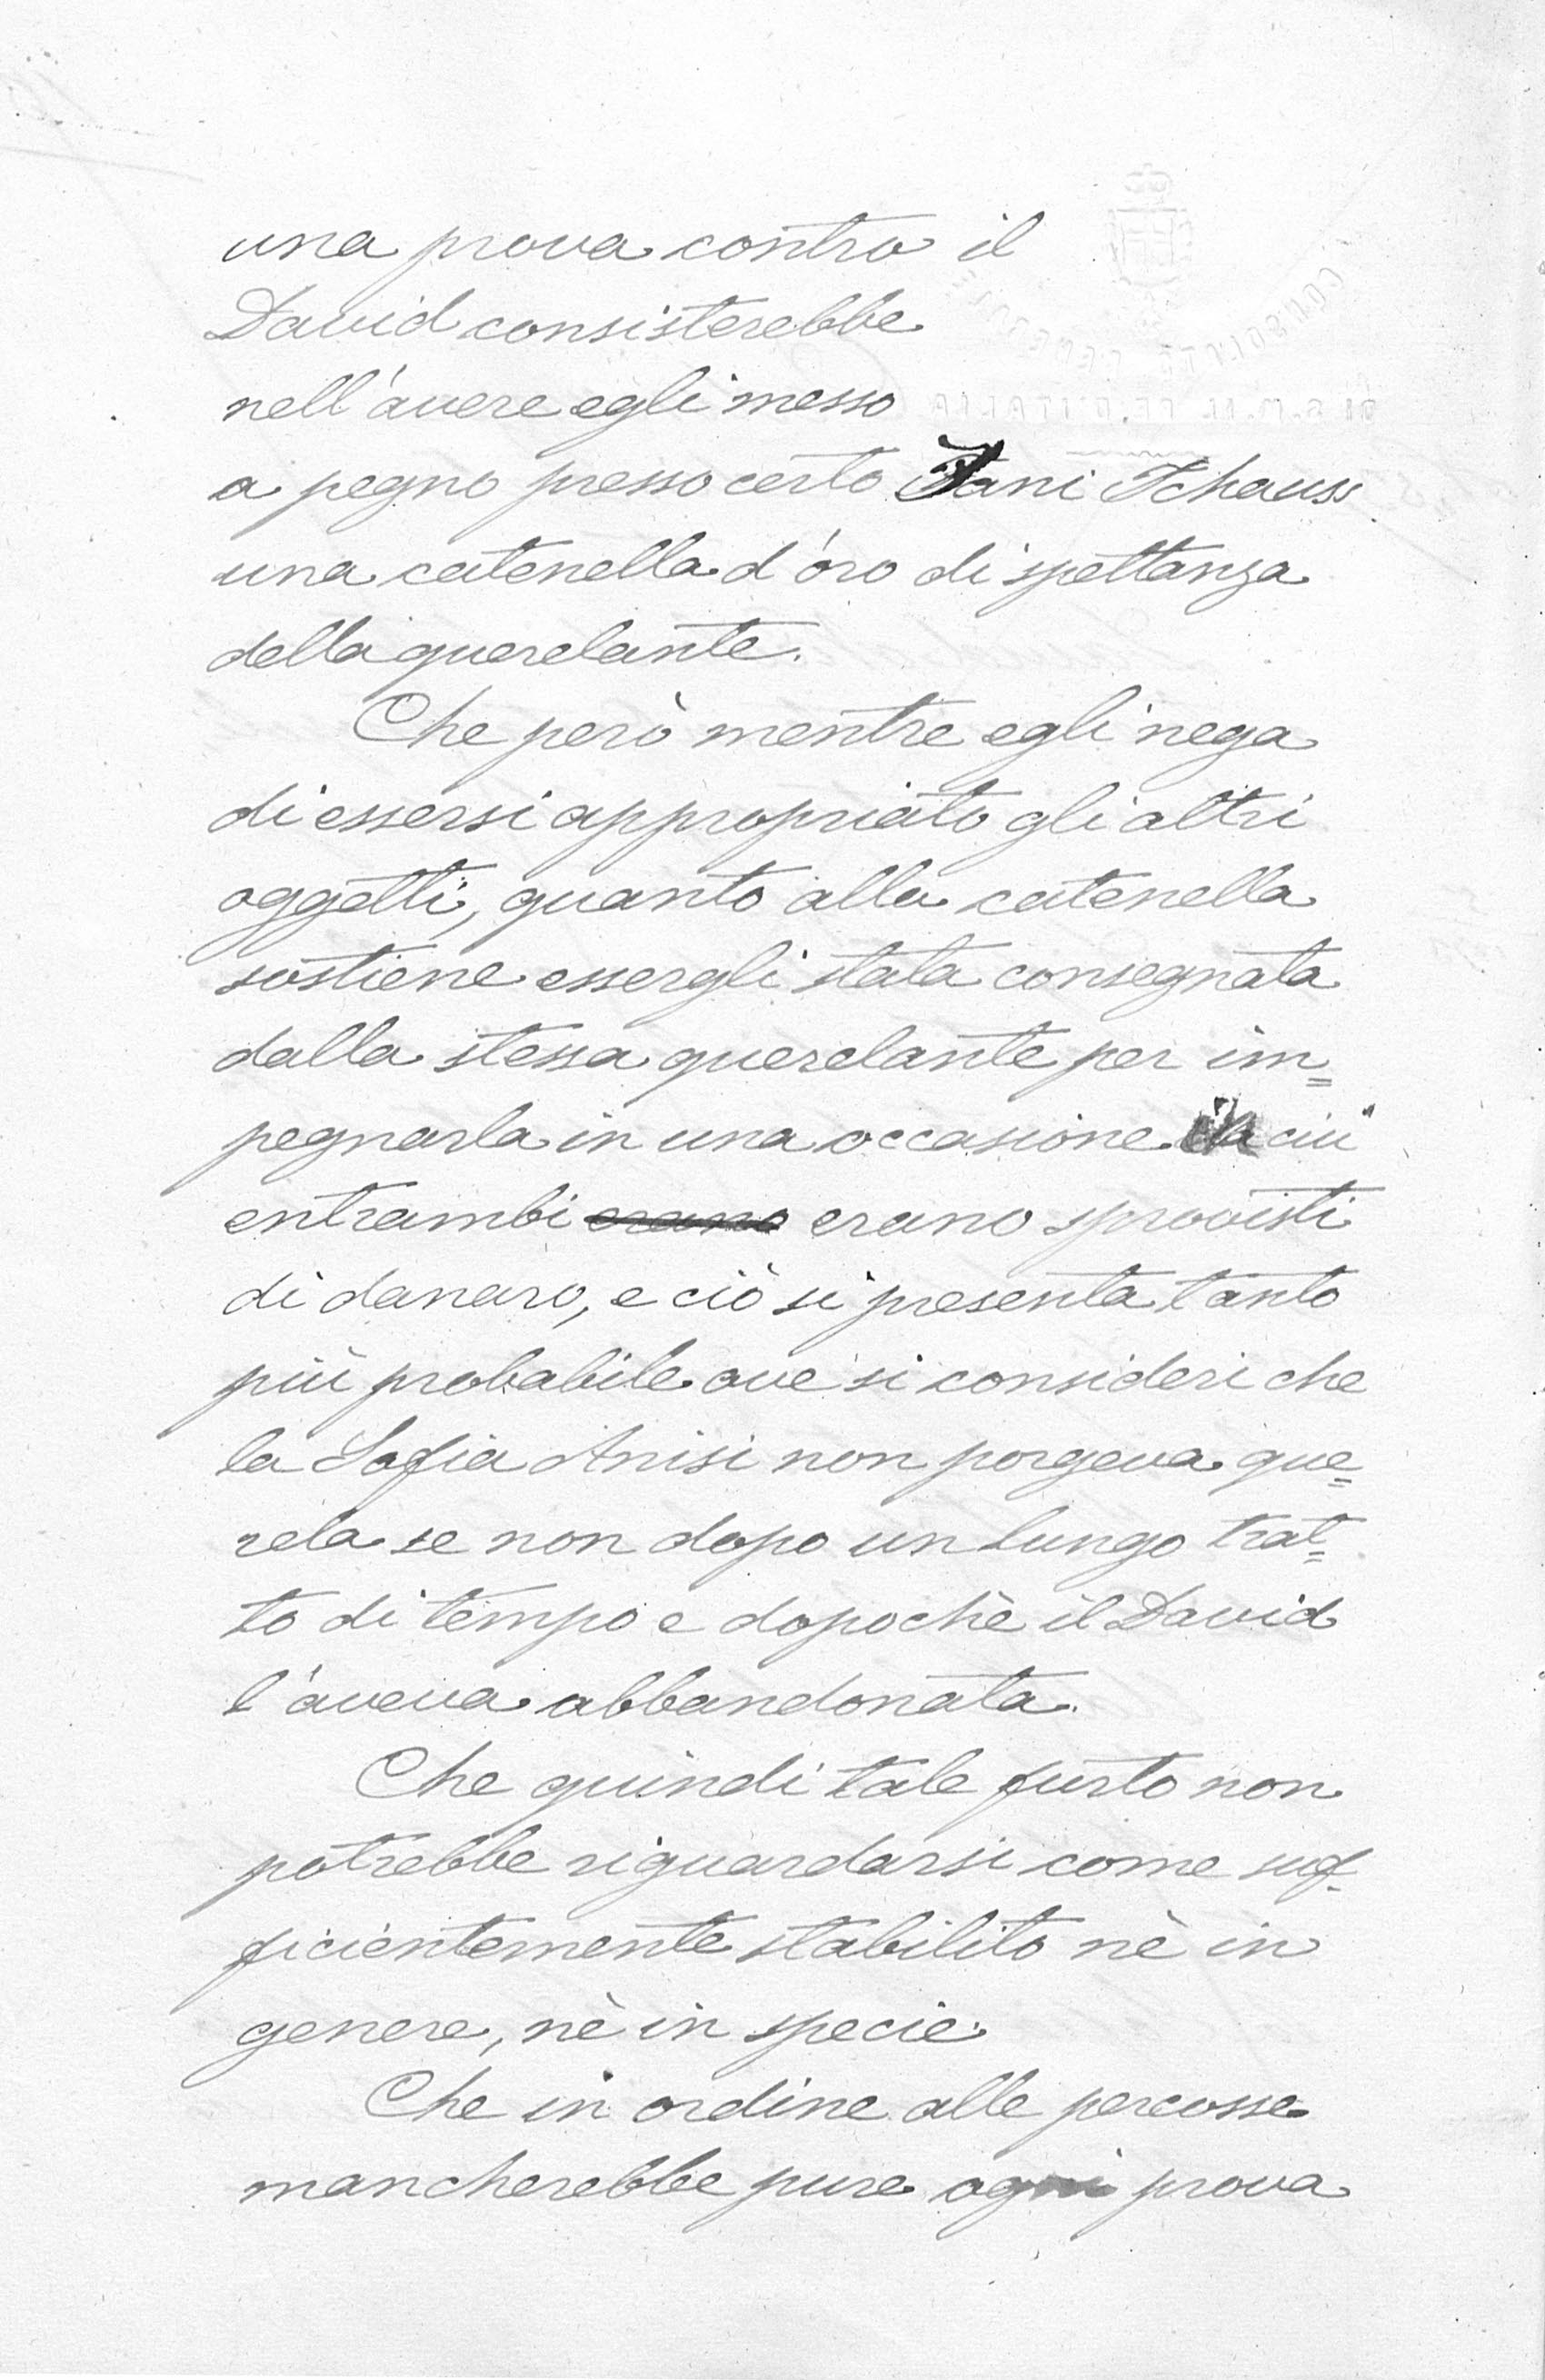 una prova contro il
David consisterebbe
nell'avere egli messo
a pegno presso certo Jani Tchauss
una catenella d'oro di spettanza
della querelante.
Che però mentre egli nega
di essersi appropriato gli altri
oggetti, quanto alla catenella
sostiene essergli stata consegnata
dalla stessa querelante per im=
pegnarla in una occasione in cui
entrambi erano erano sprovisti
di danaro, e ciò si presenta tanto
più probabile ove si consideri che
la Sofia Anisi non porgeva que=
rela se non dopo un lungo trat=
to di tempo e dopochè il David
l'aveva abbandonata.
Che quindi tale furto non
potrebbe riguardarsi come suf-
ficientemente stabilito nè in
genere, nè in specie.
Che in ordine alle percosse
mancherebbe pure ogni prova